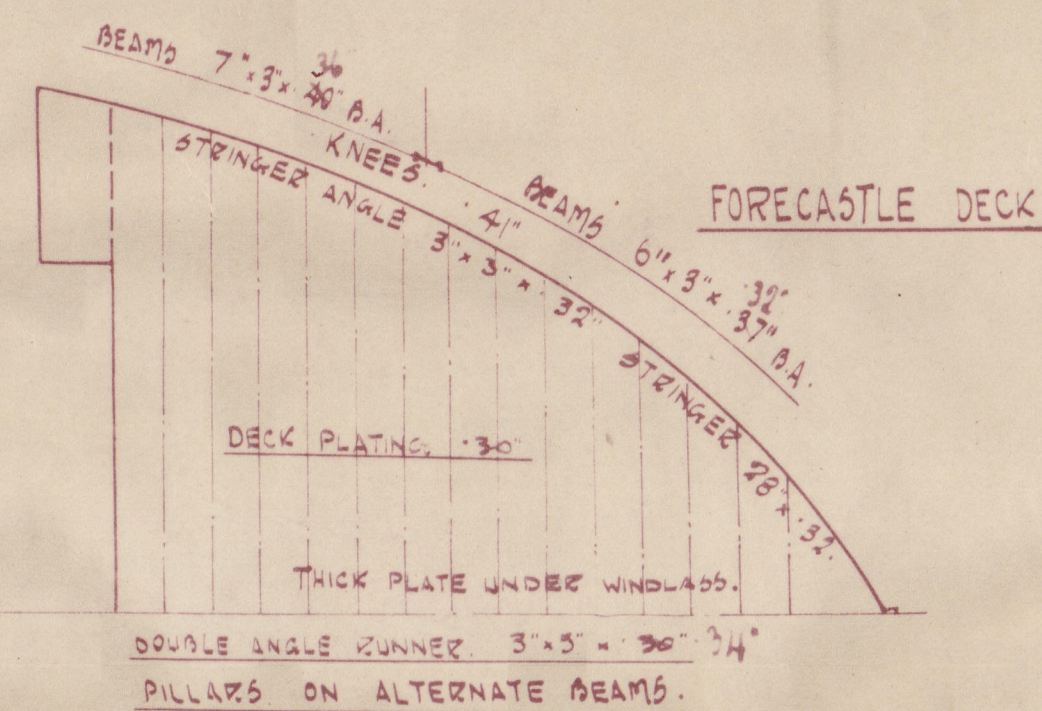 BEAMS 7" x 3" x .40" B.A.
36
KNEES. .41"
BEAMS 6" x 3" x .37" B.A.
.32"
FORECASTLE DECK
STRINGER ANGLE 3" x 3" x .32"
STRINGER 28" x .32.
DECK PLATING .30"
THICK PLATE UNDER WINDLASS.
DOUBLE ANGLE RUNNER. 3" x 3" x .30" .34"
PILLARS ON ALTERNATE BEAMS.